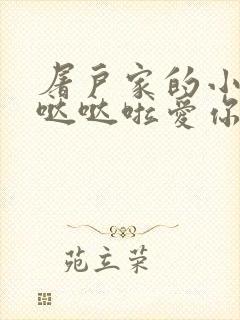 屠户家的小
哒哒啦爱你
苑立荣